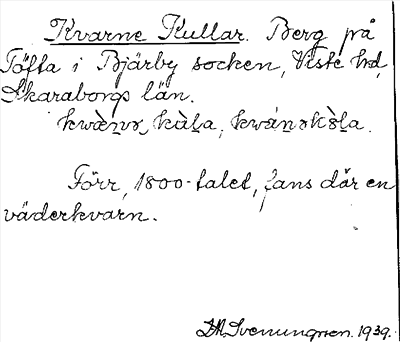 Kvarne Kullar. Berg på
Töfta i Bjärby socken, Viste hd,
Skaraborgs län.
kwàṉər kùḷa, kwáṉərkò̤ḷa.
Förr, 1800-talet, fans där en
väderkvarn.
Svenungsson. 1939.